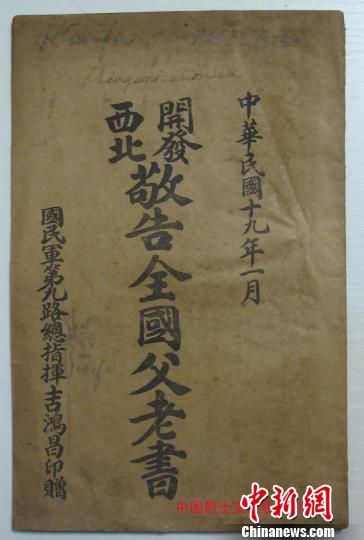 中華民國十九年一月
開發
西北
敬告全國父老書
國民軍第九路總指揮吉鴻昌印贈
中国烈士
中新网
Chinanews.com